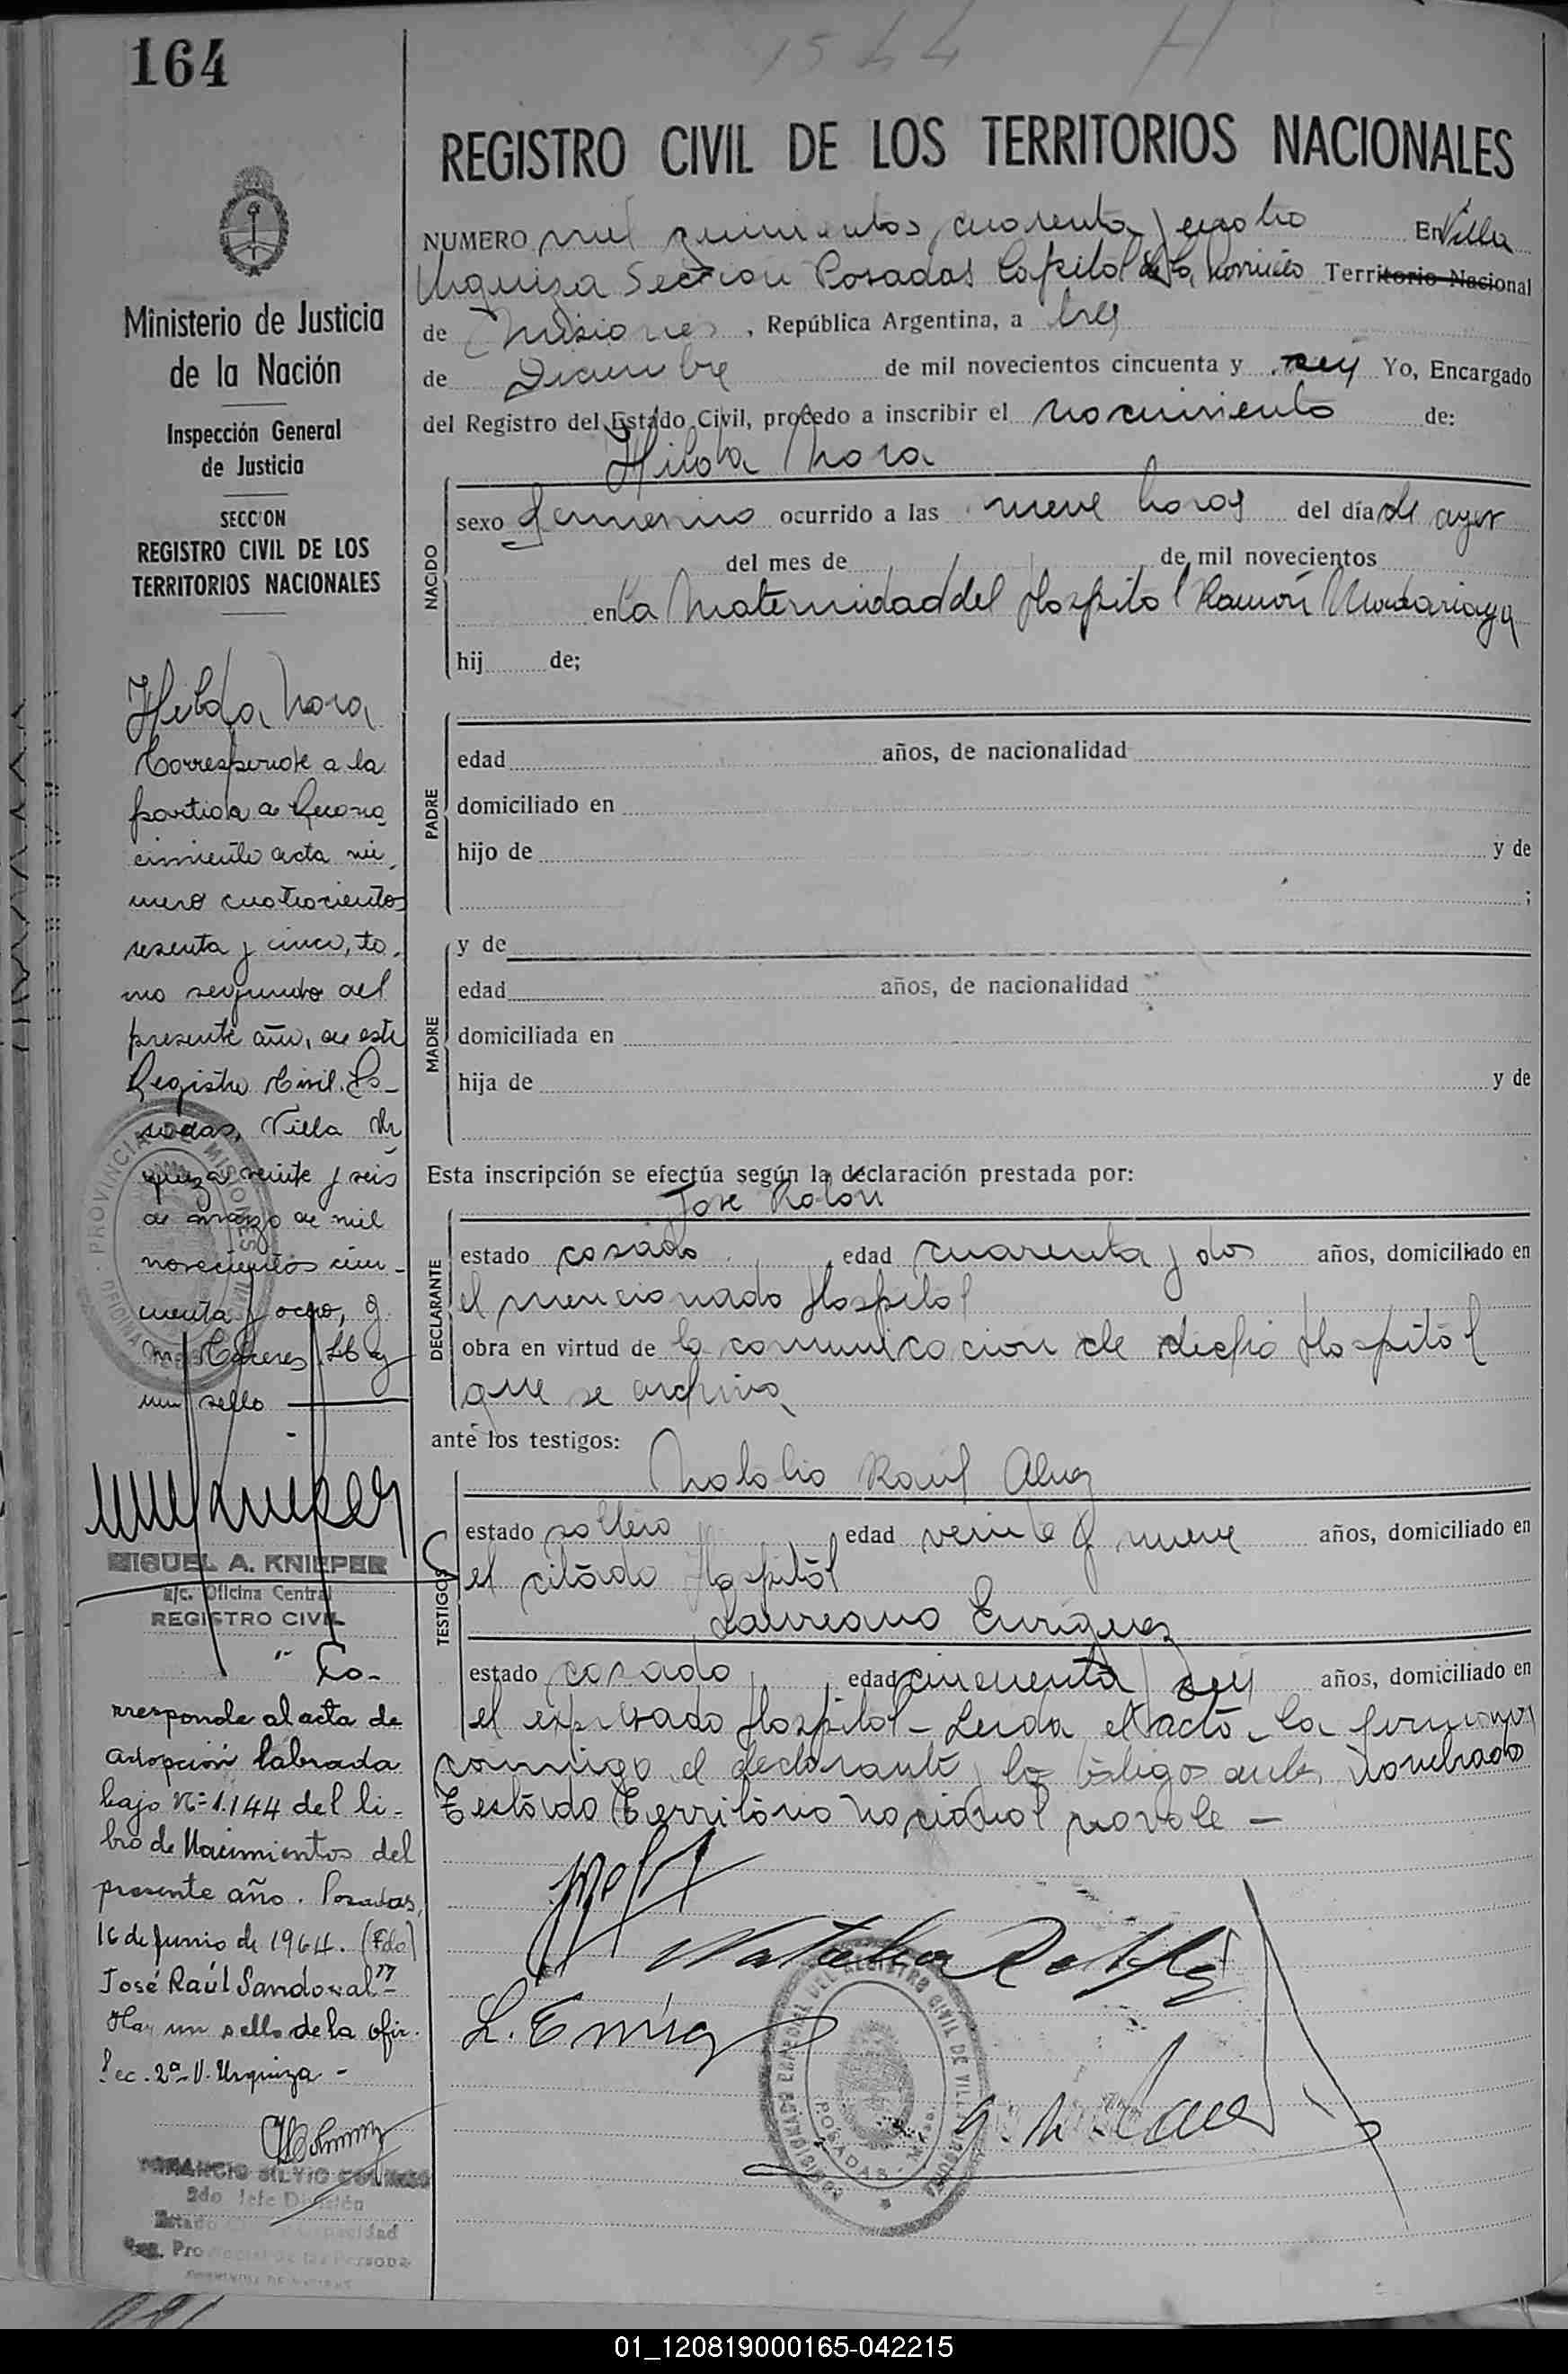 164
1544 H
REGISTRO CIVIL DE LOS TERRITORIOS NACIONALES
NUMERO mil quinientos cuarenta y cuatro En Villa
Urquiza Sección Posadas Capital de la Provincia Territorio Nacional
de Misiones, República Argentina, a tres
de Diciembre de mil novecientos cincuenta y seis Yo, Encargado
del Registro del Estado Civil, procedo a inscribir el nacimiento de:
Hilda Nora
NACIDO
sexo femenino ocurrido a las nueve horas del día de ayer
del mes de de mil novecientos
en la Maternidad del Hospital Ramón Madariaga
hij de;
PADRE
edad años, de nacionalidad
domiciliado en
hijo de y de
;
MADRE
y de
edad años, de nacionalidad
domiciliada en
hija de y de
Esta inscripción se efectúa según la declaración prestada por:
José Rolon
DECLARANTE
estado casado edad cuarenta y dos años, domiciliado en
el mencionado Hospital
obra en virtud de la comunicacion de dicho Hospital
que se archiva
ante los testigos:
Natalio Raul
TESTIGOS
estado soltero edad veinte y nueve años, domiciliado en
el citado Hospital
Laureano Enriquez
estado casado edad cincuenta y seis años, domiciliado en
el expresado Hospital - Leida el acta, la firman
conmigo el declarante y los testigos antes nombrados
Testado Territorio Nacional no vale -
L. Enriq
POSADAS
Ministerio de Justicia
de la Nación
Inspección General
de Justicia
SECCION
REGISTRO CIVIL DE LOS
TERRITORIOS NACIONALES
Hilda Nora
Corresponde a la
partida de Recono
cimiento acta nú
mero cuatrocientos
sesenta y cinco, to.
mo segundo del
presente año, de este
Registro Civil. Po-
sadas, Villa Ur
quiza veinte y seis
de marzo de mil
novecientos cin-
cuenta y ocho, g.
m. Caceres Hay
un sello
PROVINCIA DE MISIONES
MIGUEL A. KNIEPER
a/c. Oficina Central
REGISTRO CIVIL
" Co-
rresponde al acta de
adopción labrada
bajo Nº 1.144 del li-
bro de Nacimientos del
presente año. Posadas,
16 de Junio de 1964. (Fdo)
José Raúl Sandoval"-
Hay un sello de la ofir.
Sec. 2ª V. Urquiza -
SILVIO
2do Jefe División
01_120819000165-042215